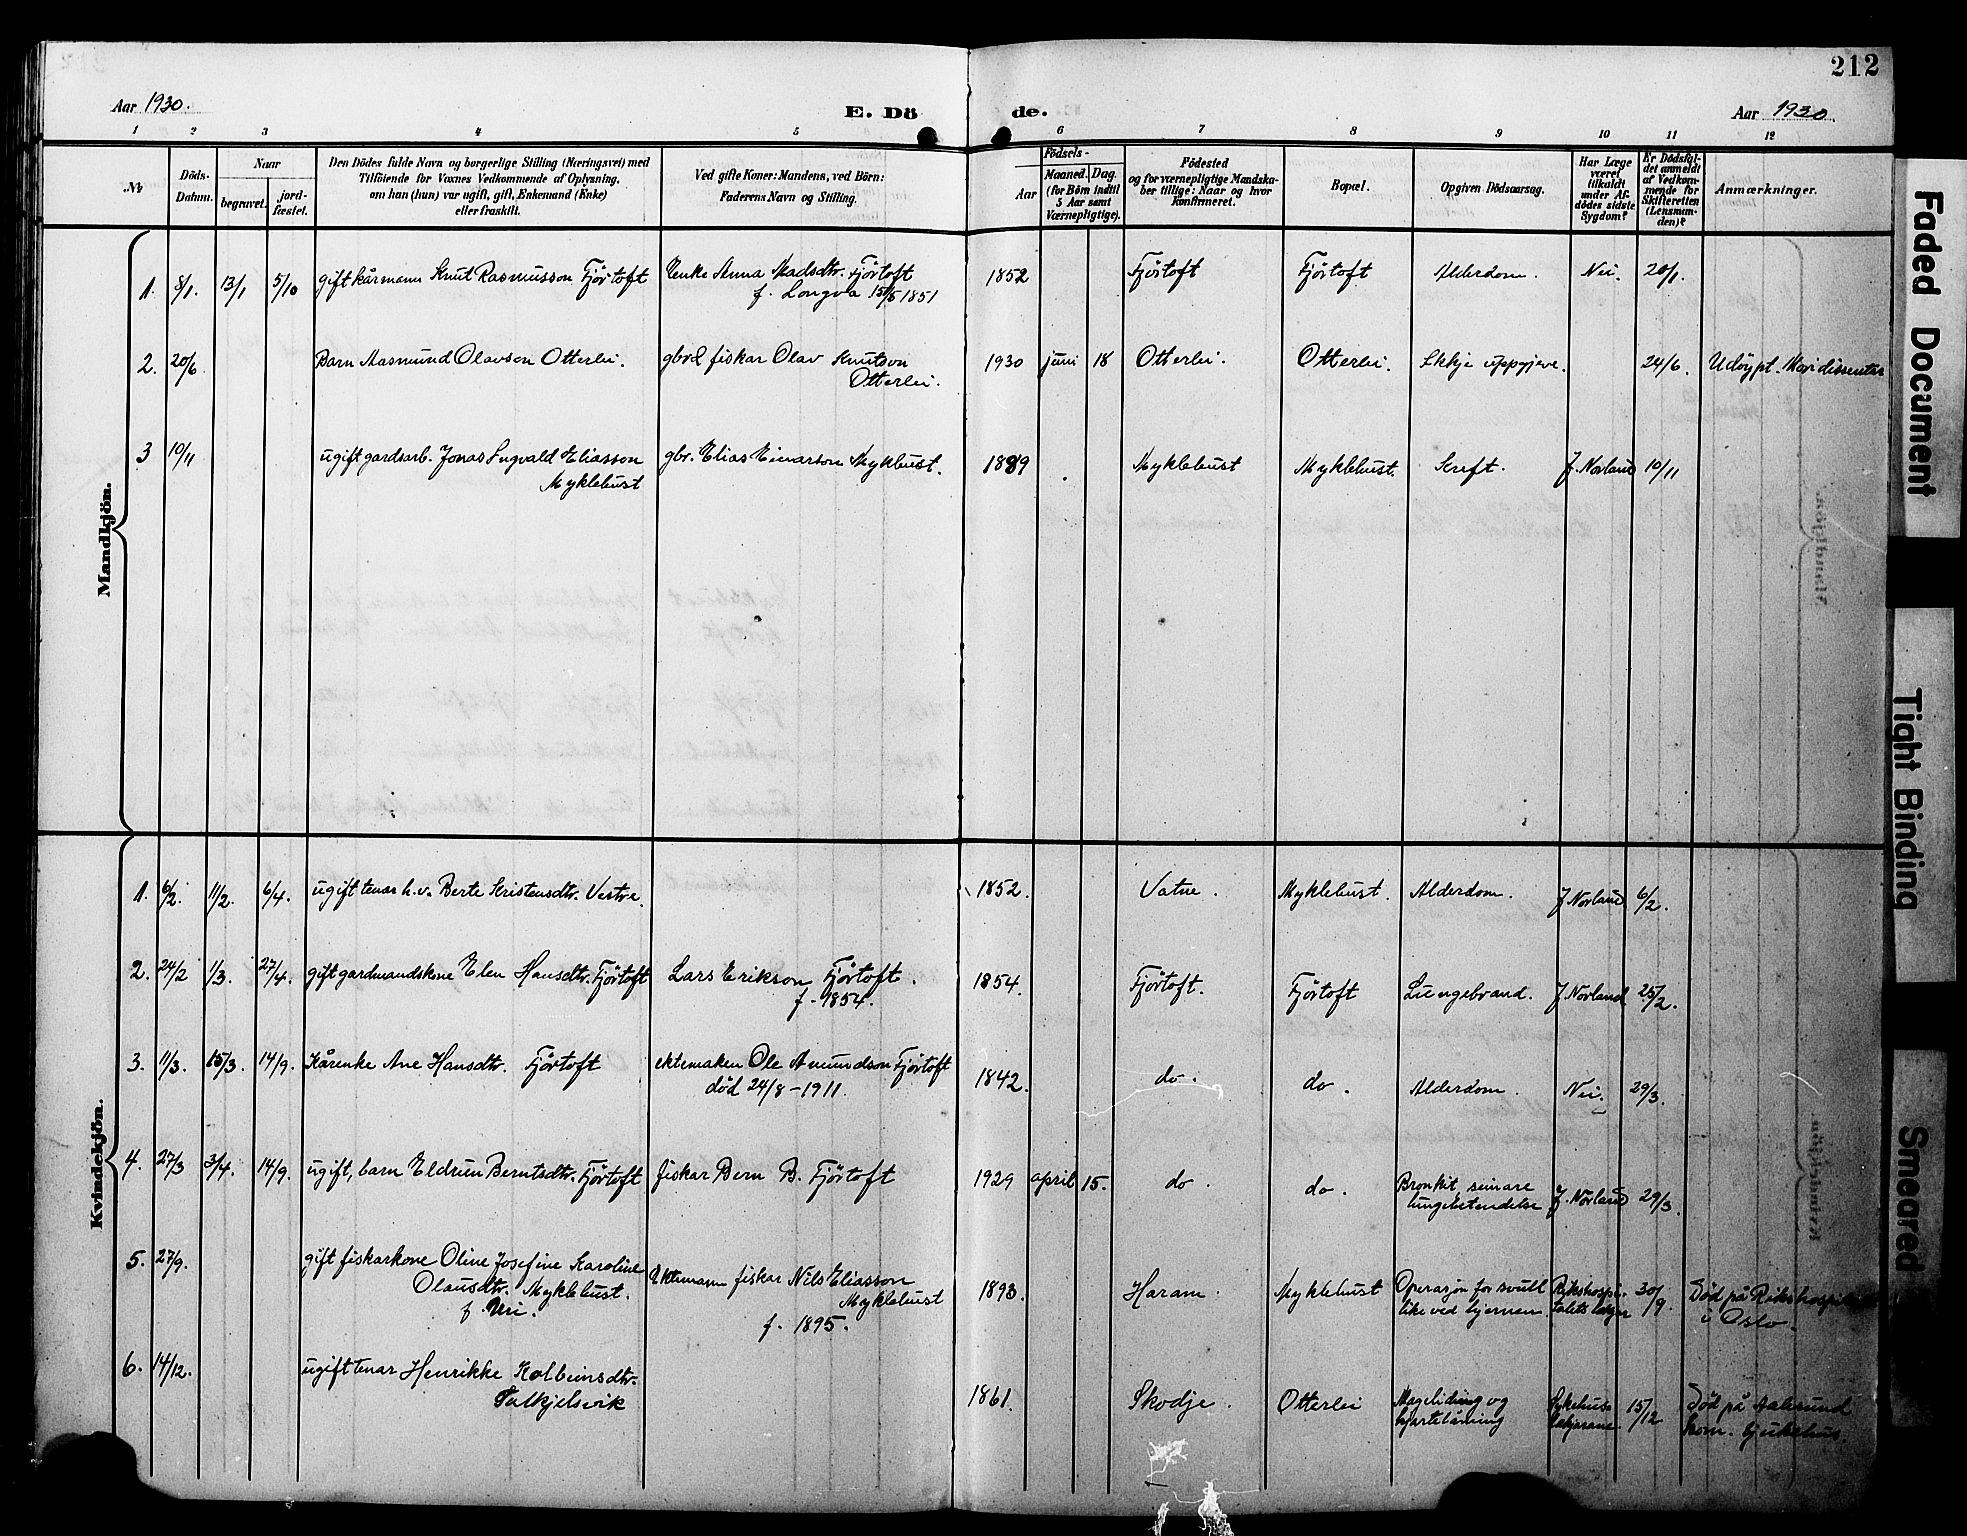 212
Aar 1930.
E. Dö de.
Aar 1930.
1 2 3 4 5 6 7 8 9 10 11 12
No
Döds-
Datum.
Naar
begravet.
jord-
fæstet.
Den Dödes fulde Navn og borgerlige Stilling (Næringsvei) med
Tilföiende for Voxnes Vedkommende af Oplysning,
om han (hun) var ugift, gift, Enkemand (Enke)
eller fraskilt.
Ved gifte Koner: Mandens, ved Börn:
Faderens Navn og Stilling.
Födsels-
Aar
Maaned. Dag.
(for Börn indtil
5 Aar samt
Værnepligtige).
Födested
og for værnepligtige Mandska-
ber tillige: Naar og hvor
konfirmeret.
Bopæl.
Opgiven Dödsaarsag.
Har Læge
været
tilkaldt
under Af-
dödes sidste
Sygdom?
Er Dödsfal-
det anmeldt
af Vedkom-
mende for
Skifteretten
(Lensman-
den)?
Anmærkninger.
Mandkjön.
1. 8/1. 13/1 5/10 gift kårmann Knut Rasmusson Fjörtoft Enke Anna Madsdtr. Fjörtoft 1852 Fjörtoft Fjörtoft Alderdom. Nei. 20/1.
f. Longva 15/5 1851
2. 20/6 Barn Aasmund Olavson Otterlei. gbrd fiskar Olav Knutson 1930 juni 18 Otterlei. Otterlei. Ikkje uppgjeve. 24/6. Udöypt. Mori dissentar
Otterlei.
3 10/11 ugift gardsarb. Jonas Ingvald Eliasson gbr. Elias Einarson Myklebust. 1889 Myklebust Myklebust. Kreft. J. Norland 10/11
Myklebust
Kvindekjön.
1. 6/2. 11/2. 6/4. ugift tenar h.v. Berte Kristensdtr. Vestre. 1852. Vatne. Myklebust. Alderdom. J Norland 6/2.
2. 24/2 1/3. 27/4. gift gardmandskone Elen Hansdtr. Fjörtoft Lars Erikson Fjörtoft. 1854. Fjörtoft. Fjörtoft Lungebrand. J. Norland 25/2.
f. 1854.
3. 11/3. 15/3. 14/9. Kårenke Ane Hansdtr. Fjörtoft ektemaken Ole Amundson Fjörtoft 1842. do. do. Alderdom. Nei. 29/3.
död 24/8 - 1911.
4. 27/3 3/4. 14/9. ugift, barn Eldrun Berntsdtr. Fjörtoft fiskar Bern B. Fjörtoft 1929 april 15. do. do. Bronkit seinare J. Norland 29/3.
lungebetendelse
5. 27/9. gift fiskarkone Oline Josefine Karoline Ektemann fiskar Nils Eliasson 1893. Haram. Myklebust Operasjon for svull Rikshospi- 30/9. Död på Rikshospitalet
Olausdtr. Myklebust. Myklebust like ved hjernen talets læger i Oslo.
f. Uri. f. 1895.
6. 14/12. ugift tenar Henrikke Kolbeinsdtr. 1861. Skodje. Otterlei Mageliding og Sykehus- 15/12 Död på Aalesund
Valkjelsvik hjartelåming lækjarane kom. sjukehus.
Faded Document
Tight Binding
Smeared